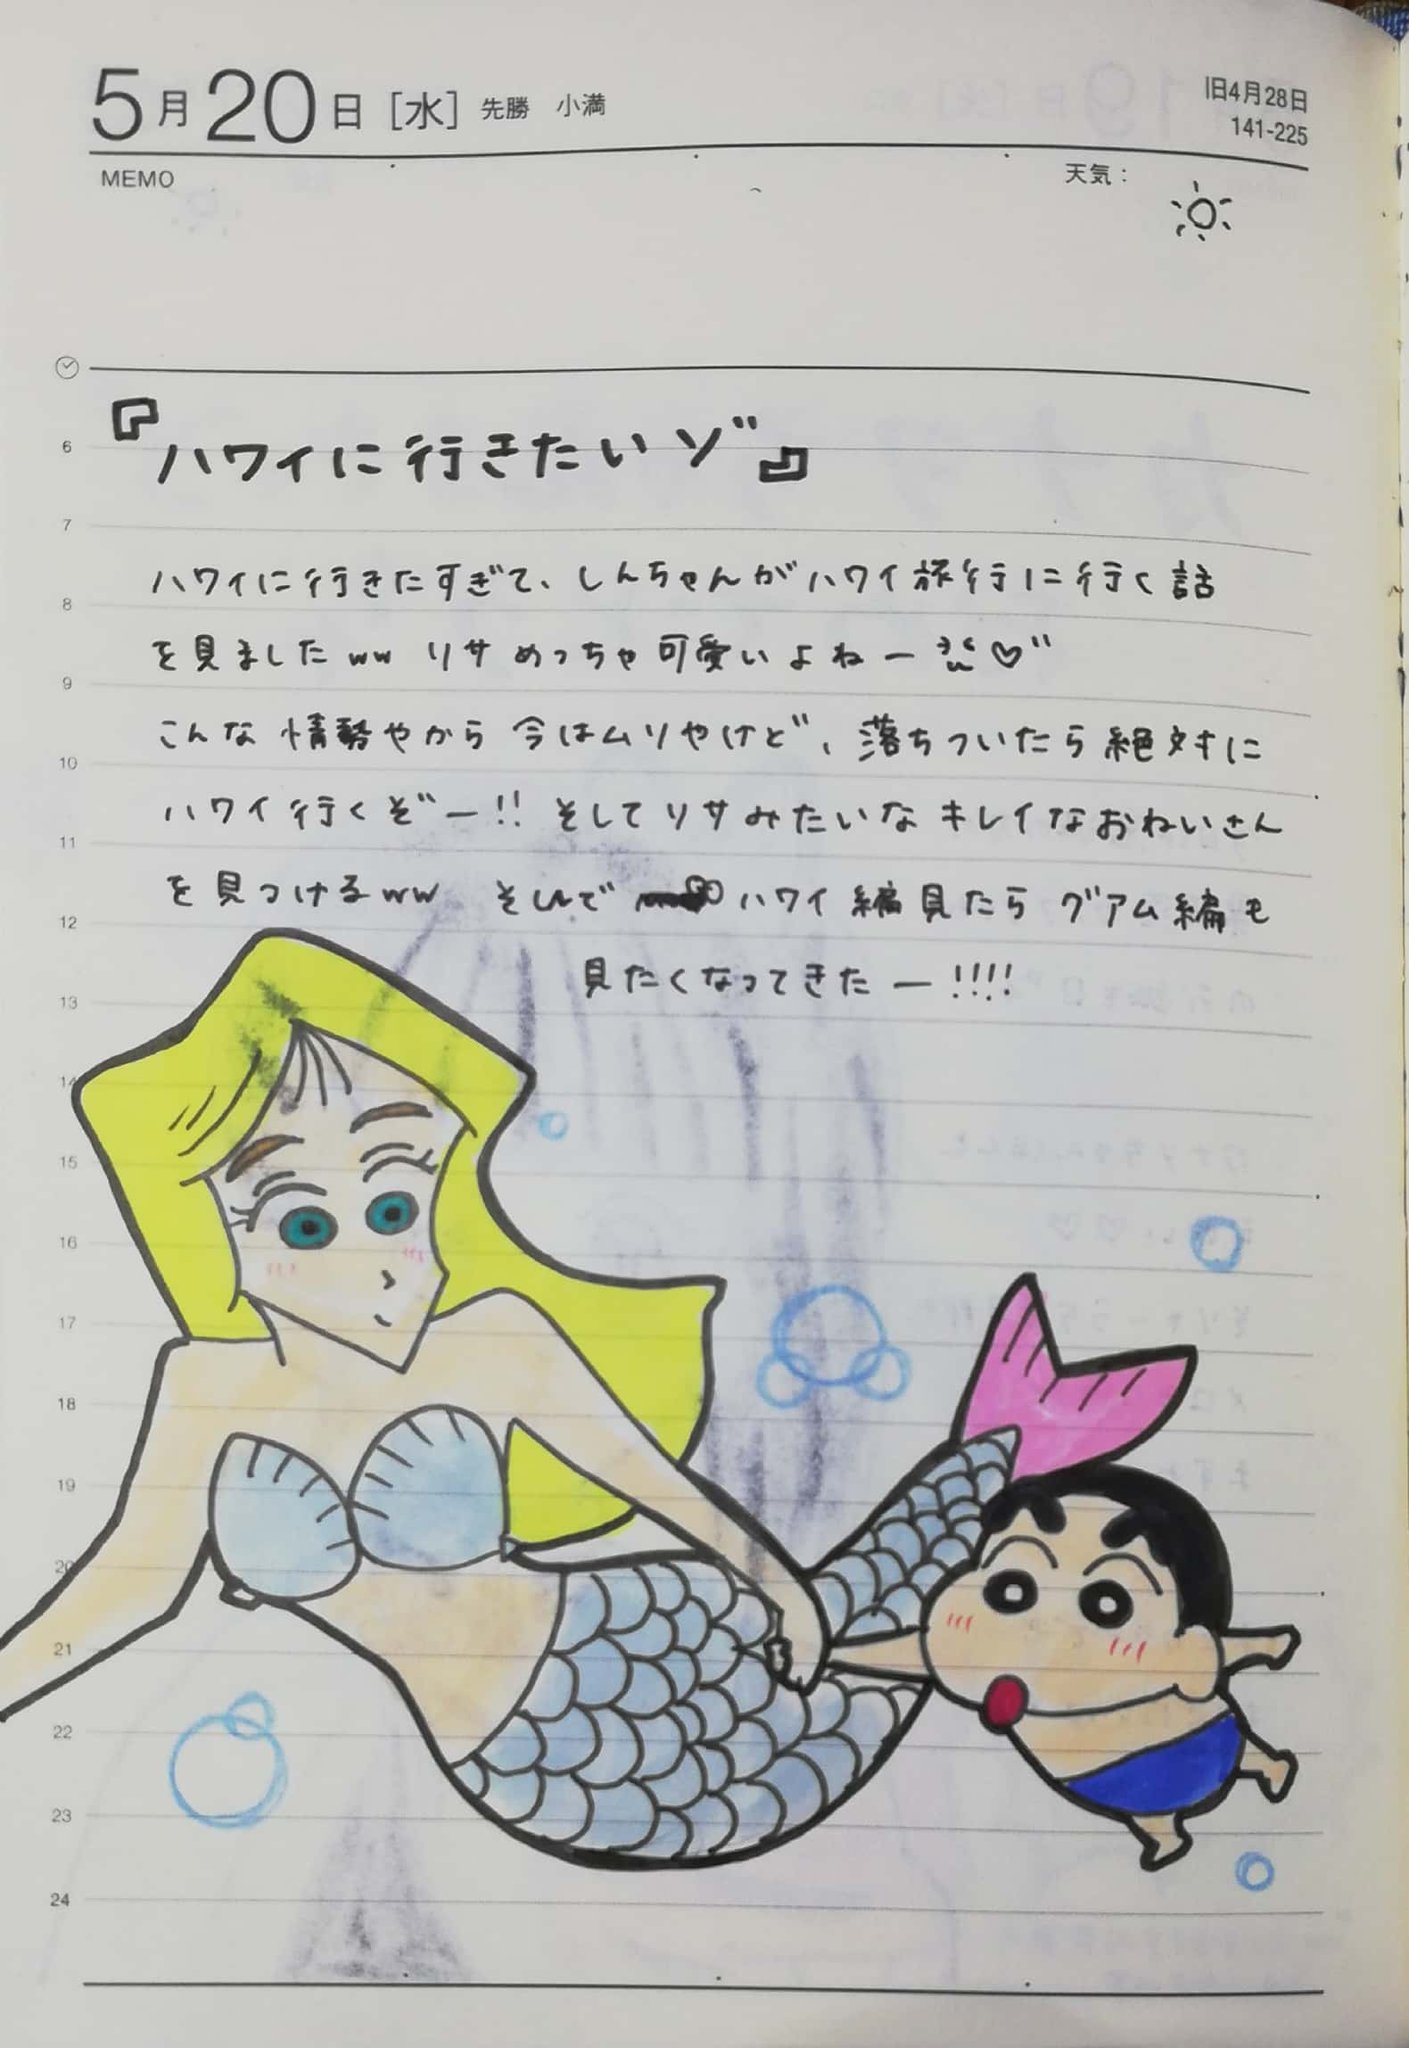 5月20日[水] 先勝 小満
旧4月28日
141-225
MEMO
天気:
『ハワイに行きたいゾ』
ハワイに行きたすぎて、しんちゃんがハワイ旅行に行く話
を見ましたww リサめっちゃ可愛いよねー♡
こんな情勢やから今はムリやけど、落ちついたら絶対に
ハワイ行くぞー!! そしてリサみたいなキレイなおねいさん
を見つけるww そんで ハワイ編見たらグアム編も
見たくなってきたー!!!!
6
7
8
9
10
11
12
13
14
15
16
17
18
19
20
21
22
23
24